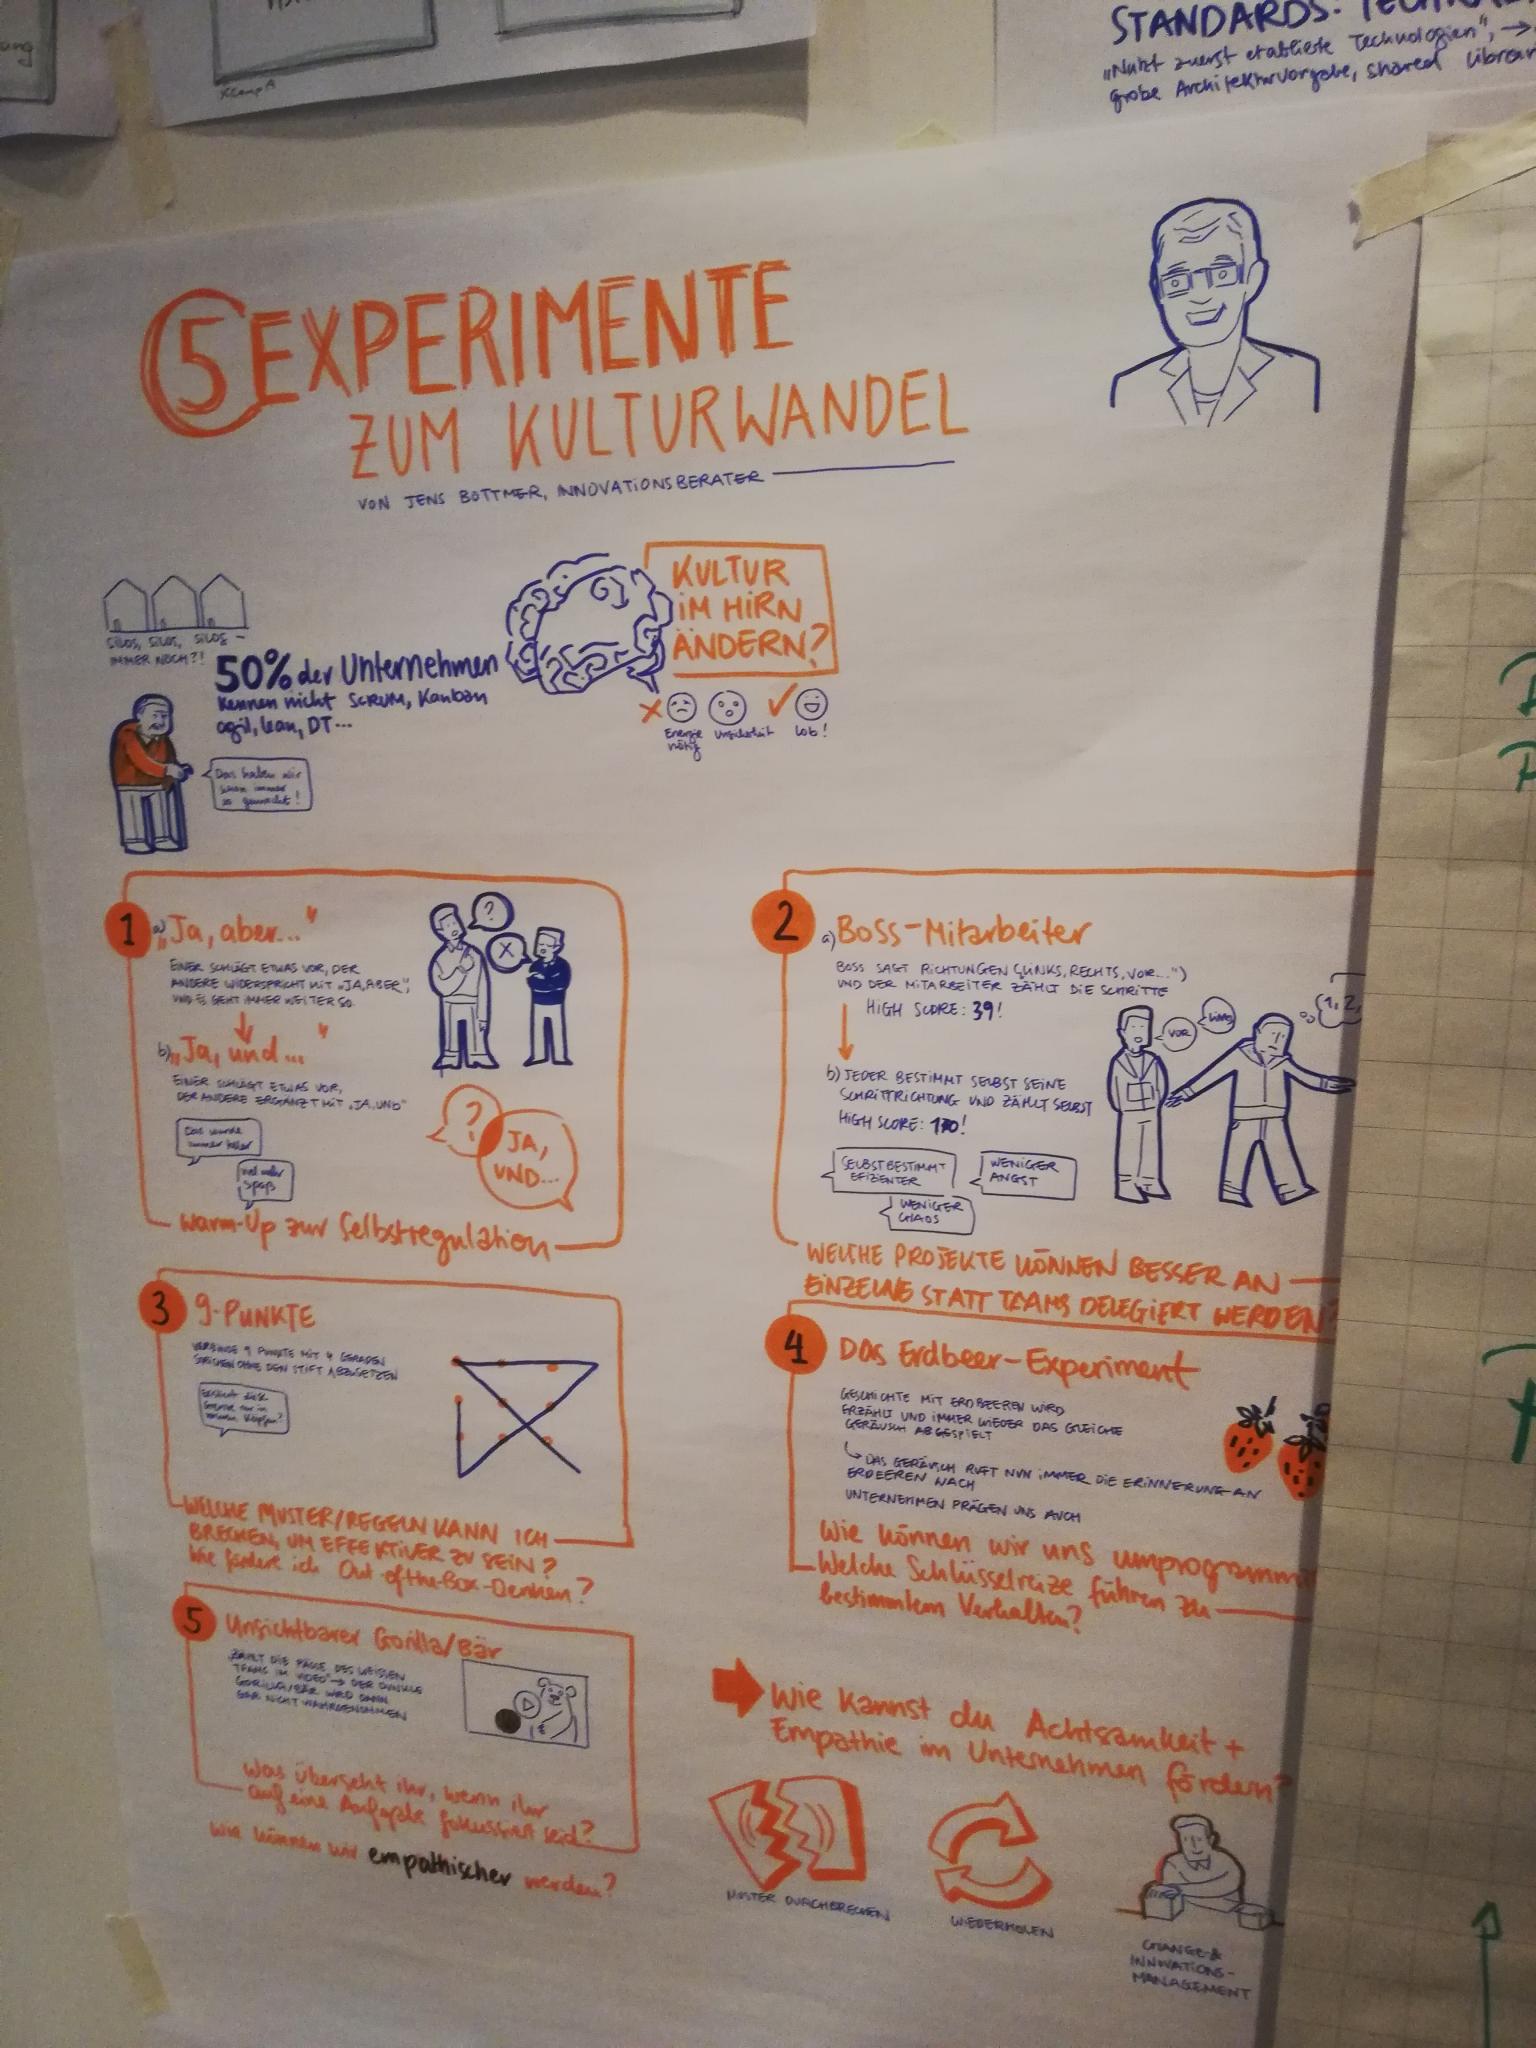 XCamp A
STANDARDS:
„Nutzt zuerst etablierte Technologien", →
grobe Architekturvorgabe, shared
5 EXPERIMENTE
ZUM KULTURWANDEL
VON JENS BOTTMER, INNOVATIONSBERATER
SILOS, SILOS, SILOS –
IMMER NOCH?!
50% der Unternehmen
kennen nicht SCRUM, Kanban
agil, lean, DT...
Das haben wir
schon immer
so gemacht!
KULTUR
IM HIRN
ÄNDERN?
Energie
nötig
Unsicherheit
Lob!
1 a) „Ja, aber..."
EINER SCHLÄGT ETWAS VOR, DER
ANDERE WIDERSPRICHT MIT „JA, ABER",
UND ES GEHT IMMER WEITER SO.
b) „Ja, und..."
EINER SCHLÄGT ETWAS VOR,
DER ANDERE ERGÄNZT MIT „JA, UND"
?
X
Das wurde
immer toller
viel mehr
Spaß
?!
JA,
UND...
Warm-Up zur Selbstregulation
2 a) Boss-Mitarbeiter
BOSS SAGT RICHTUNGEN (LINKS, RECHTS, VOR...")
UND DER MITARBEITER ZÄHLT DIE SCHRITTE
HIGH SCORE: 39!
b) JEDER BESTIMMT SELBST SEINE
SCHRITTRICHTUNG UND ZÄHLT SELBST
HIGH SCORE: 170!
VOR
LINKS
1, 2,
SELBSTBESTIMMT
EFIZIENTER
WENIGER
ANGST
WENIGER
CHAOS
WELCHE PROJEKTE KÖNNEN BESSER AN
EINZELNE STATT TEAMS DELEGIERT WERDEN?
3 9-PUNKTE
VERBINDE 9 PUNKTE MIT 4 GERADEN
STRICHEN OHNE DEN STIFT ABZUSETZEN
Existiert diese
Grenze nur in
Köpfen?
WELCHE MUSTER/REGELN KANN ICH
BRECHEN, UM EFFEKTIVER ZU SEIN?
Wie fördere ich Out-of-the-Box-Denken?
4 Das Erdbeer-Experiment
GESCHICHTE MIT ERDBEEREN WIRD
ERZÄHLT UND IMMER WIEDER DAS GLEICHE
GERÄUSCH ABGESPIELT
↳ DAS GERÄUSCH RUFT NUN IMMER DIE ERINNERUNG AN
ERDBEEREN WACH
UNTERNEHMEN PRÄGEN UNS AUCH
Wie können wir uns umprogrammi
Welche Schlüsselreize führen zu
bestimmtem Verhalten?
5 Unsichtbarer Gorilla/Bär
„ZÄHLT DIE PÄSSE DES WEISSEN
TEAMS IM VIDEO" → DER DUNKLE
GORILLA/BÄR WIRD DANN
GAR NICHT WAHRGENOMMEN
Was überseht ihr, wenn ihr
auf eine Aufgabe fokussiert seid?
Wie können wir empathischer werden?
Wie kannst du Achtsamkeit +
Empathie im Unternehmen fördern?
MUSTER DURCHBRECHEN
WIEDERHOLEN
CHANGE-&
INNOVATIONS-
MANAGEMENT